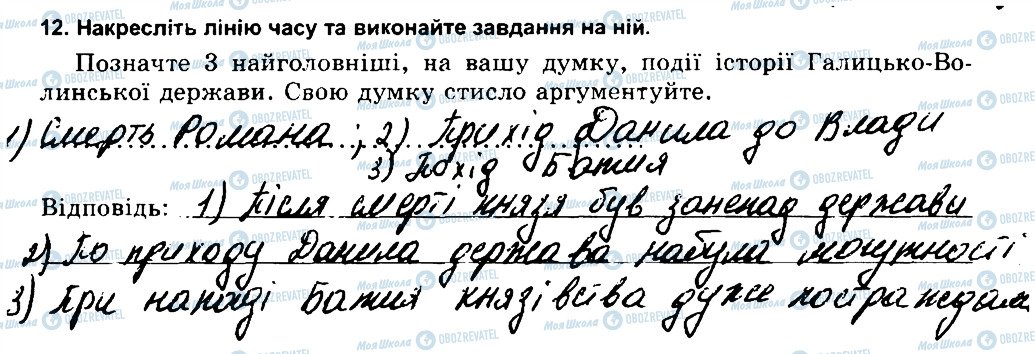 12. Накресліть лінію часу та виконайте завдання на ній.
Позначте 3 найголовніші, на вашу думку, події історії Галицько-Во-
линської держави. Свою думку стисло аргументуйте.
1) Смерть Романа ; 2) Прихід Данила до влади
3) Похід Батия
Відповідь: 1) Після смерті князя був занепад держави
2) По приходу Данила держава набула могутності
3) При нападі Батия князівства дуже постраждали